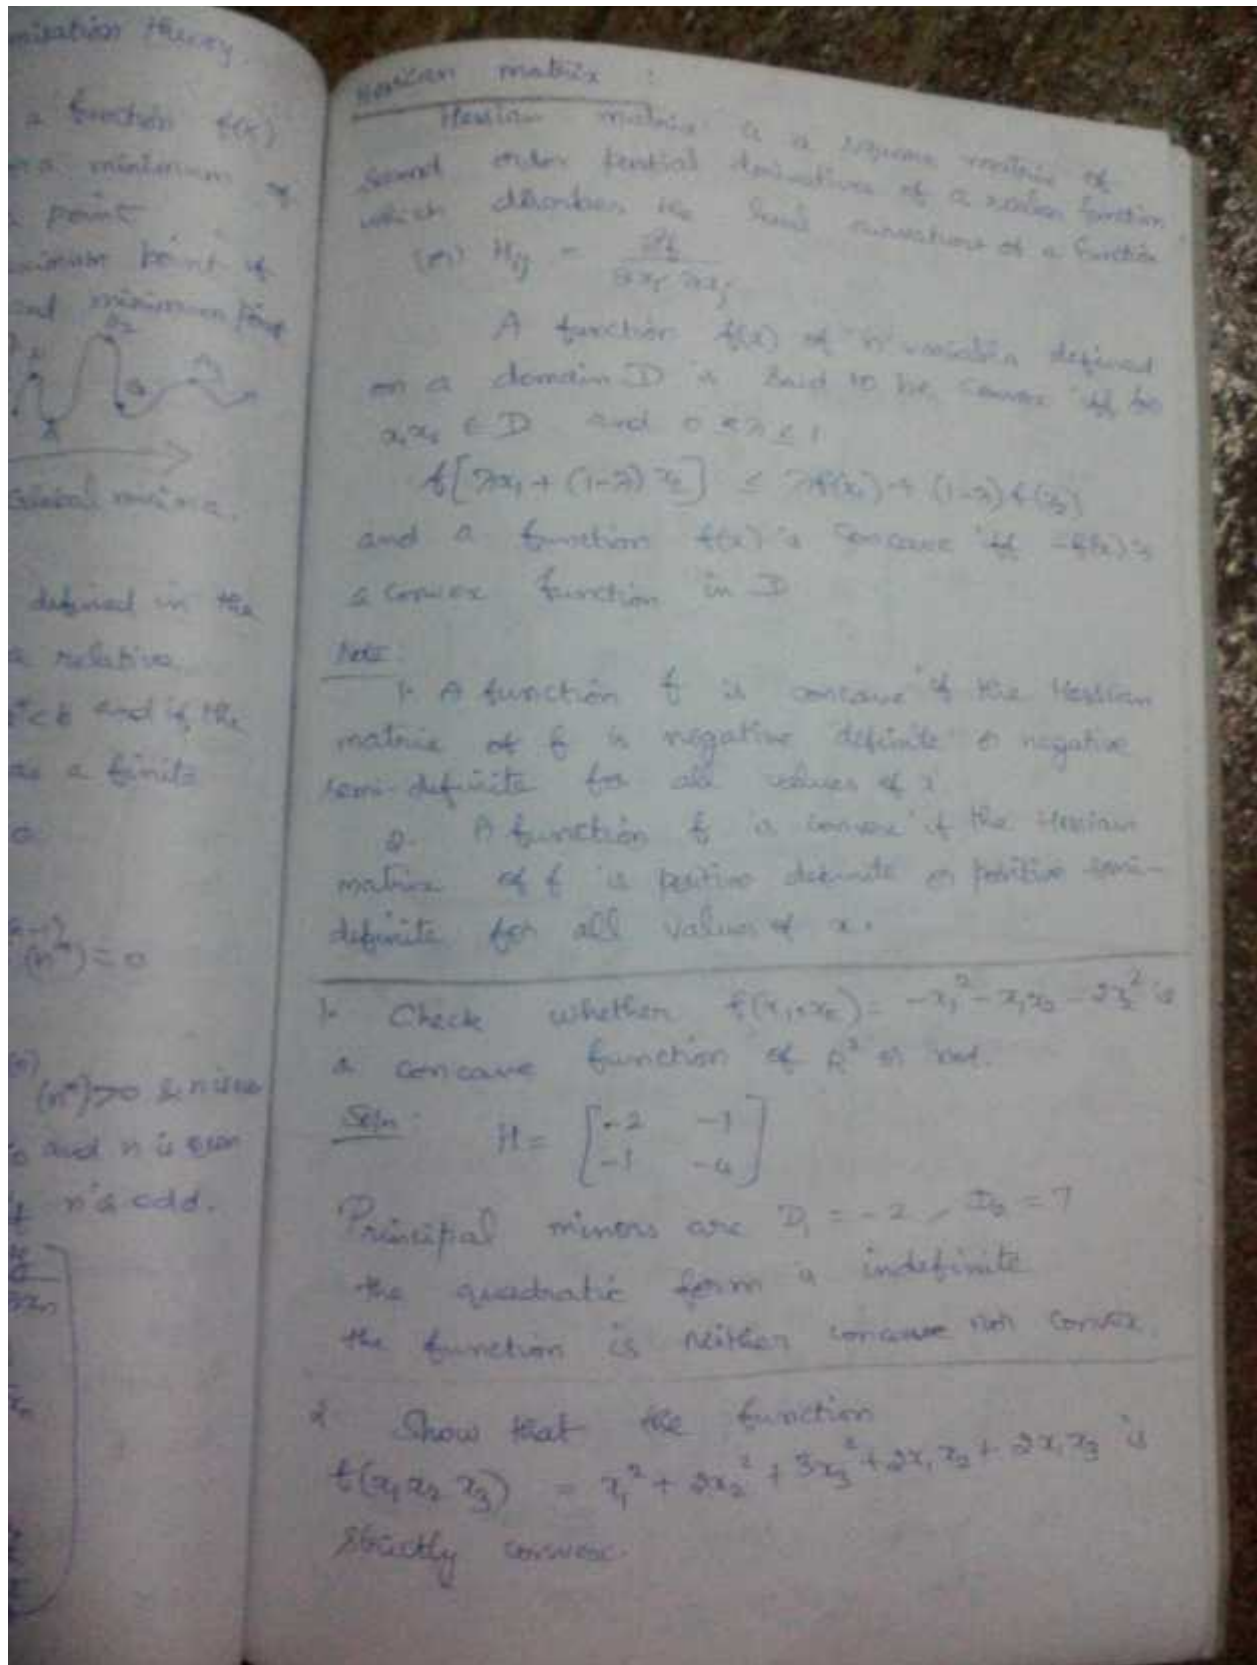 misation theory.
a function f(x)
a minimum of
a point
ximum point of
and minimum point
Global maxima.
defined in the
a relative
and if the
as a finite
0
(n*) = 0
(n*) > 0 & n is even
and n is even
n is odd.
Hessian matrix :
Hessian matrix is a square matrix of
second order partial derivatives of a scalar function
which describes the local curvature of a function
(or) Hij = ∂f / ∂xi ∂xj
A function f(x) of 'n' variables defined
on a domain D is said to be convex iff for
x1 x2 ∈ D and 0 ≤ λ ≤ 1
f[λx1 + (1-λ)x2] ≤ λf(x1) + (1-λ)f(x2)
and a function f(x) is concave iff -f(x) is
a convex function in D
Note:
1. A function f is concave if the Hessian
matrix of f is negative definite or negative
semi-definite for all values of x
2. A function f is convex if the Hessian
matrix of f is positive definite or positive semi-
definite for all values of x.
1. Check whether f(x1, x2) = -x1² - x1x2 - 2x2² is
a concave function of R² or not.
Soln:
H = [ -2 -1
-1 -4 ]
Principal minors are D1 = -2, D2 = 7
the quadratic form is indefinite
the function is neither concave nor convex.
2 Show that the function
f(x1 x2 x3) = x1² + 2x2² + 3x3² + 2x1x2 + 2x1x3 is
strictly convex.